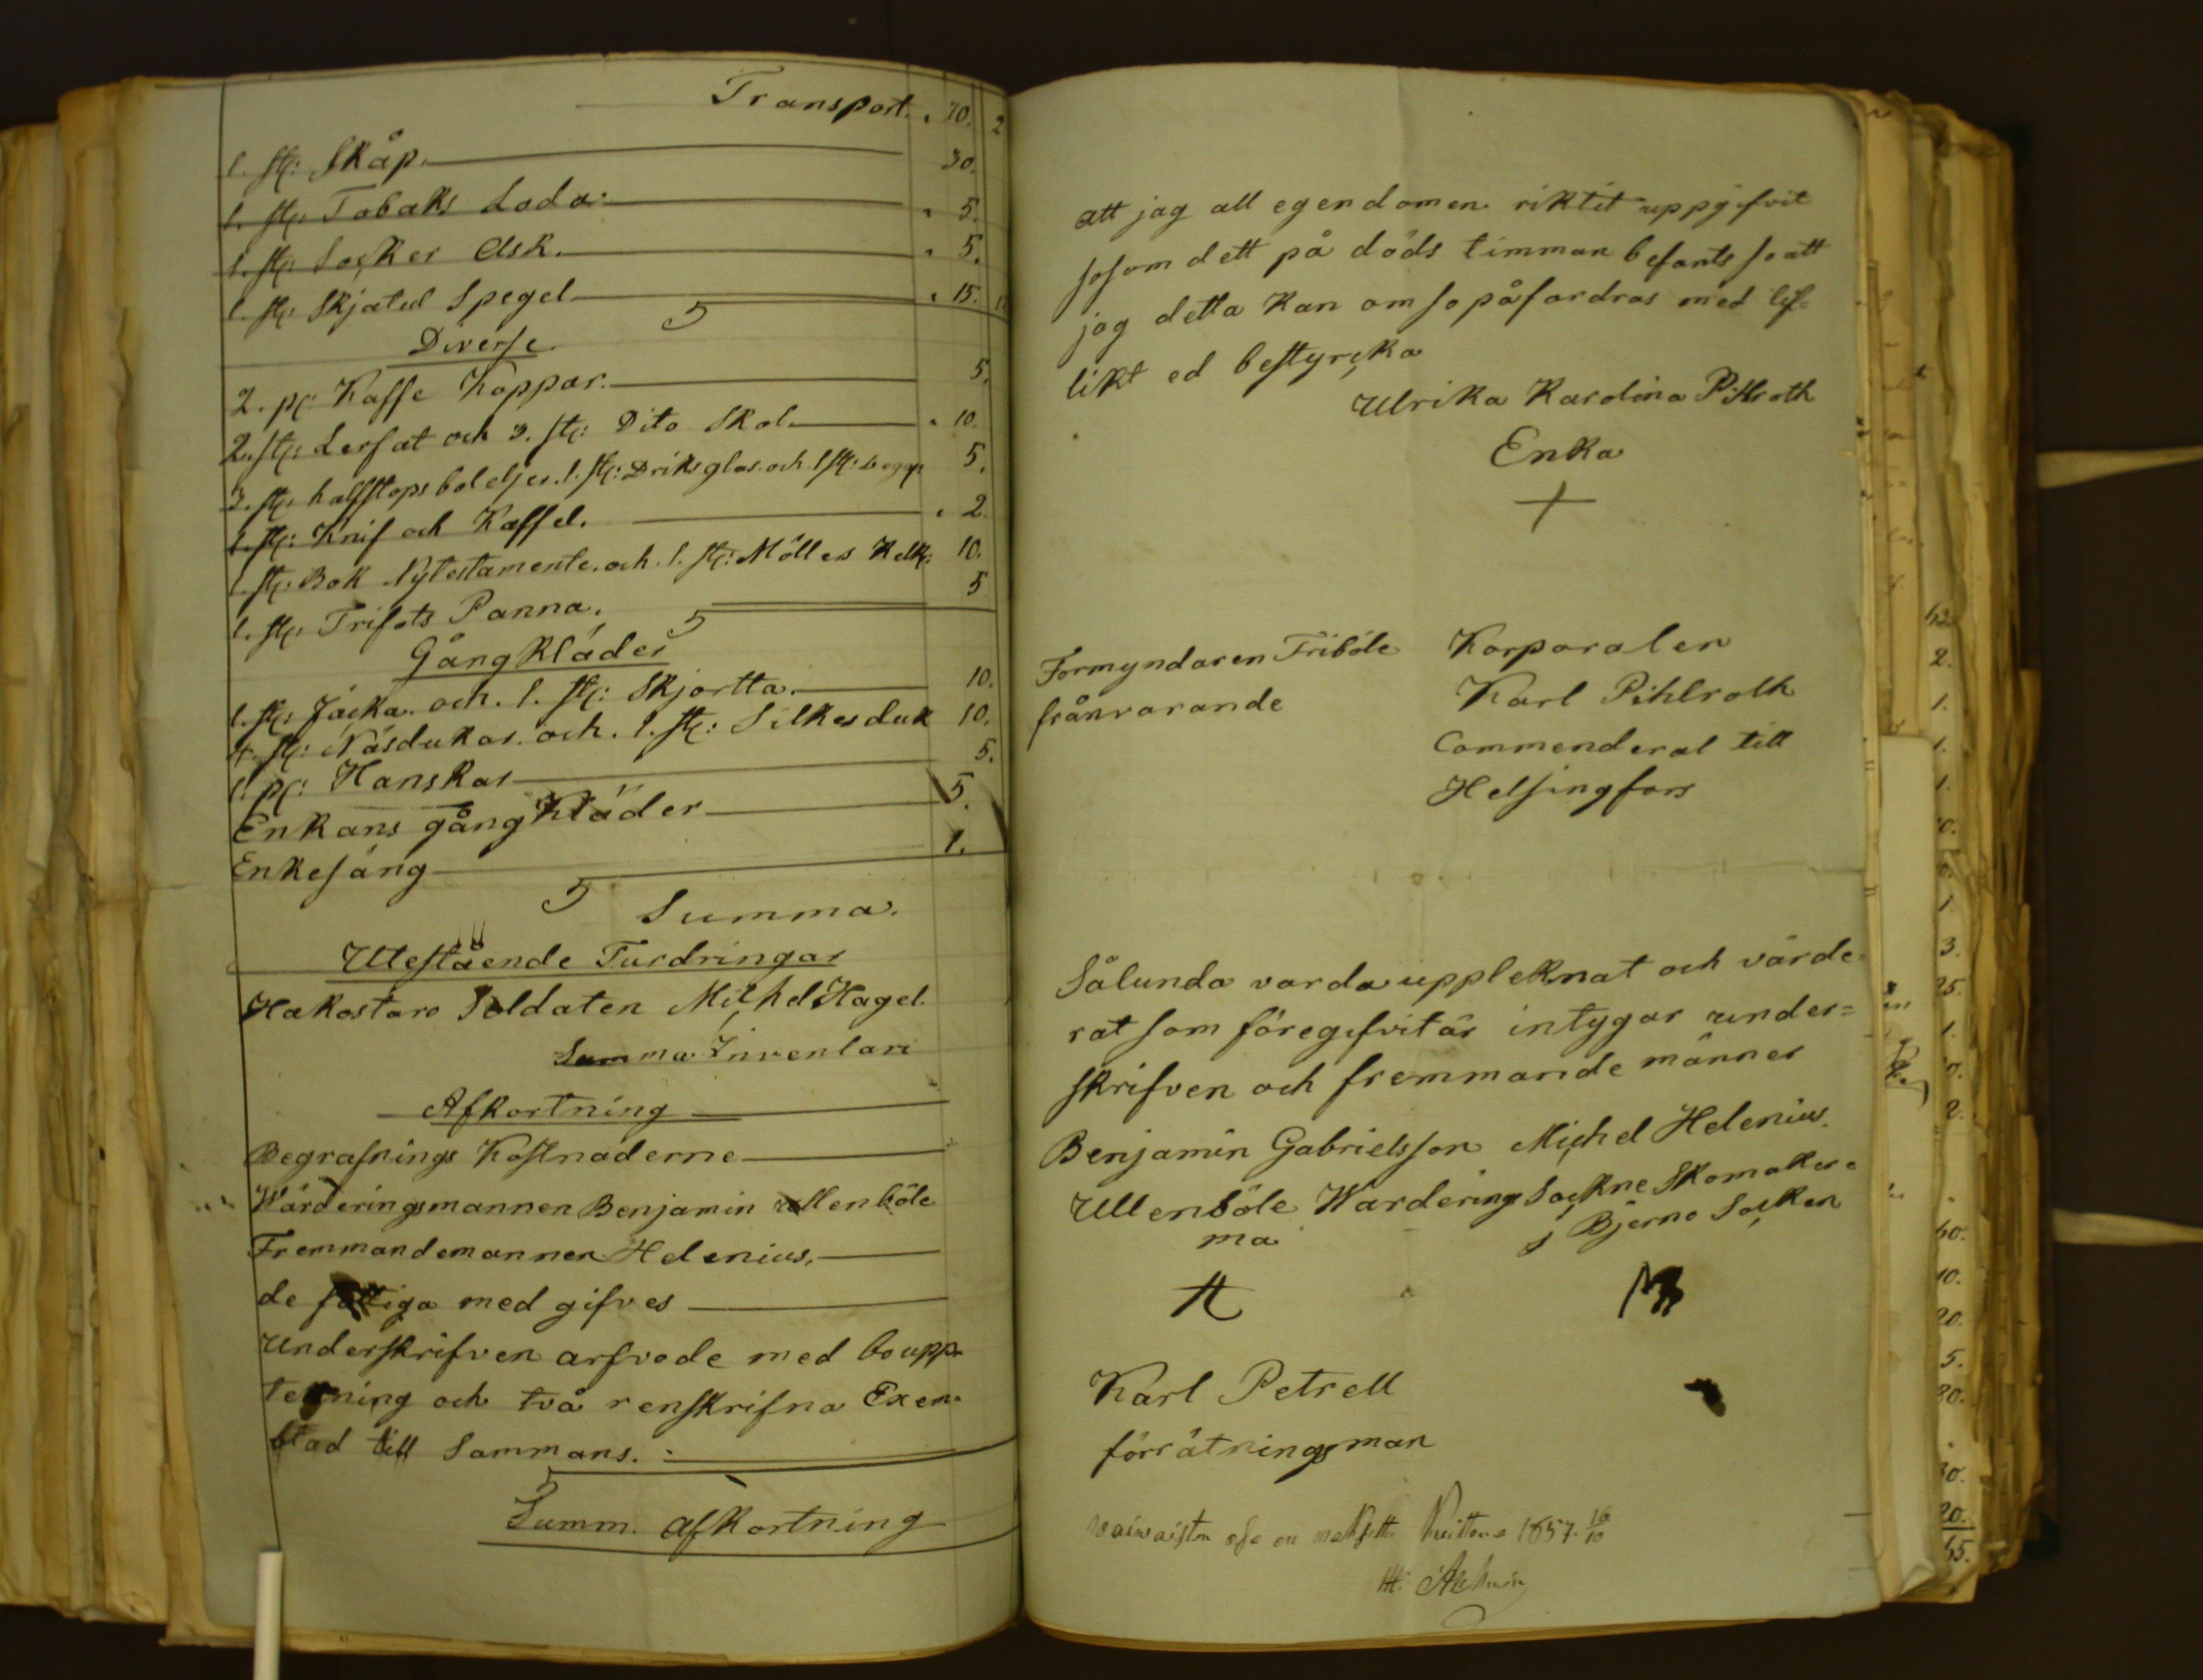 Transport. " 70. 2
1. st: Skåp. 30.
1. st: Tobaks Loda " 5.
1. st: Socker Ask. " 5.
1. st: Skjatul Spegel " 15.
Diverse.
2. p: Kaffe Koppar. 5.
2. st: Lerfat och 3. st: Dito Skol. " 10.
3. st: halfstops boteljer. 1. st: Driks glas. och 1 st: 5.
1. st: Knif och Kaffel. " 2.
1. st: Bok Nytestamente. och. 1. st: Möllers 10.
1. st: Trifots Panna. 5
Gång Kläder
1. st: Jäcka. och. 1. st: Skjortta. 10.
4. st: Näsdukar. och. 1. st: Silkesduk 10.
1. p: Hanskar 5.
Enkans gång Kläder 5.
Enkesäng 1.
Summa.
Utestående Furdringar
Hakostaro Soldaten Michel Hagel.
Summa Inventari
Afkortning
Begrafnings Kostnaderne
Wärderingsmannen Benjamin Ullenböle
Fremmandemannen Helenius,
de fattiga med gifves
Underskrifven arfvode med boupp-
tekning och två renskrifna Exem-
blad till Sammans. :
Summ. Afkortning
att jag all egendomen riktit uppgifvit
sosom dett på döds timman befants so att
jag detta Kan om so påfordras med lif-
likt ed bestyrcka
Ulrika Karolina Pihlroth
Enka
+
Formyndaren Friböle Korporalen
frånvarande Karl Pihlroth
Commenderat till
Helsingfors
Sålunda varda uppteknat och värde-
rat som föregifvit är intygar under=
skrifven och fremmande männer
Benjamin Gabrielsson Michel Helenius.
Ullenböle Wardering Sockne Skomaker
ma j Bjerno Socken
Karl Petrell
förrätningsman
Vaivaisten osa on maksettu 1857. 16/10